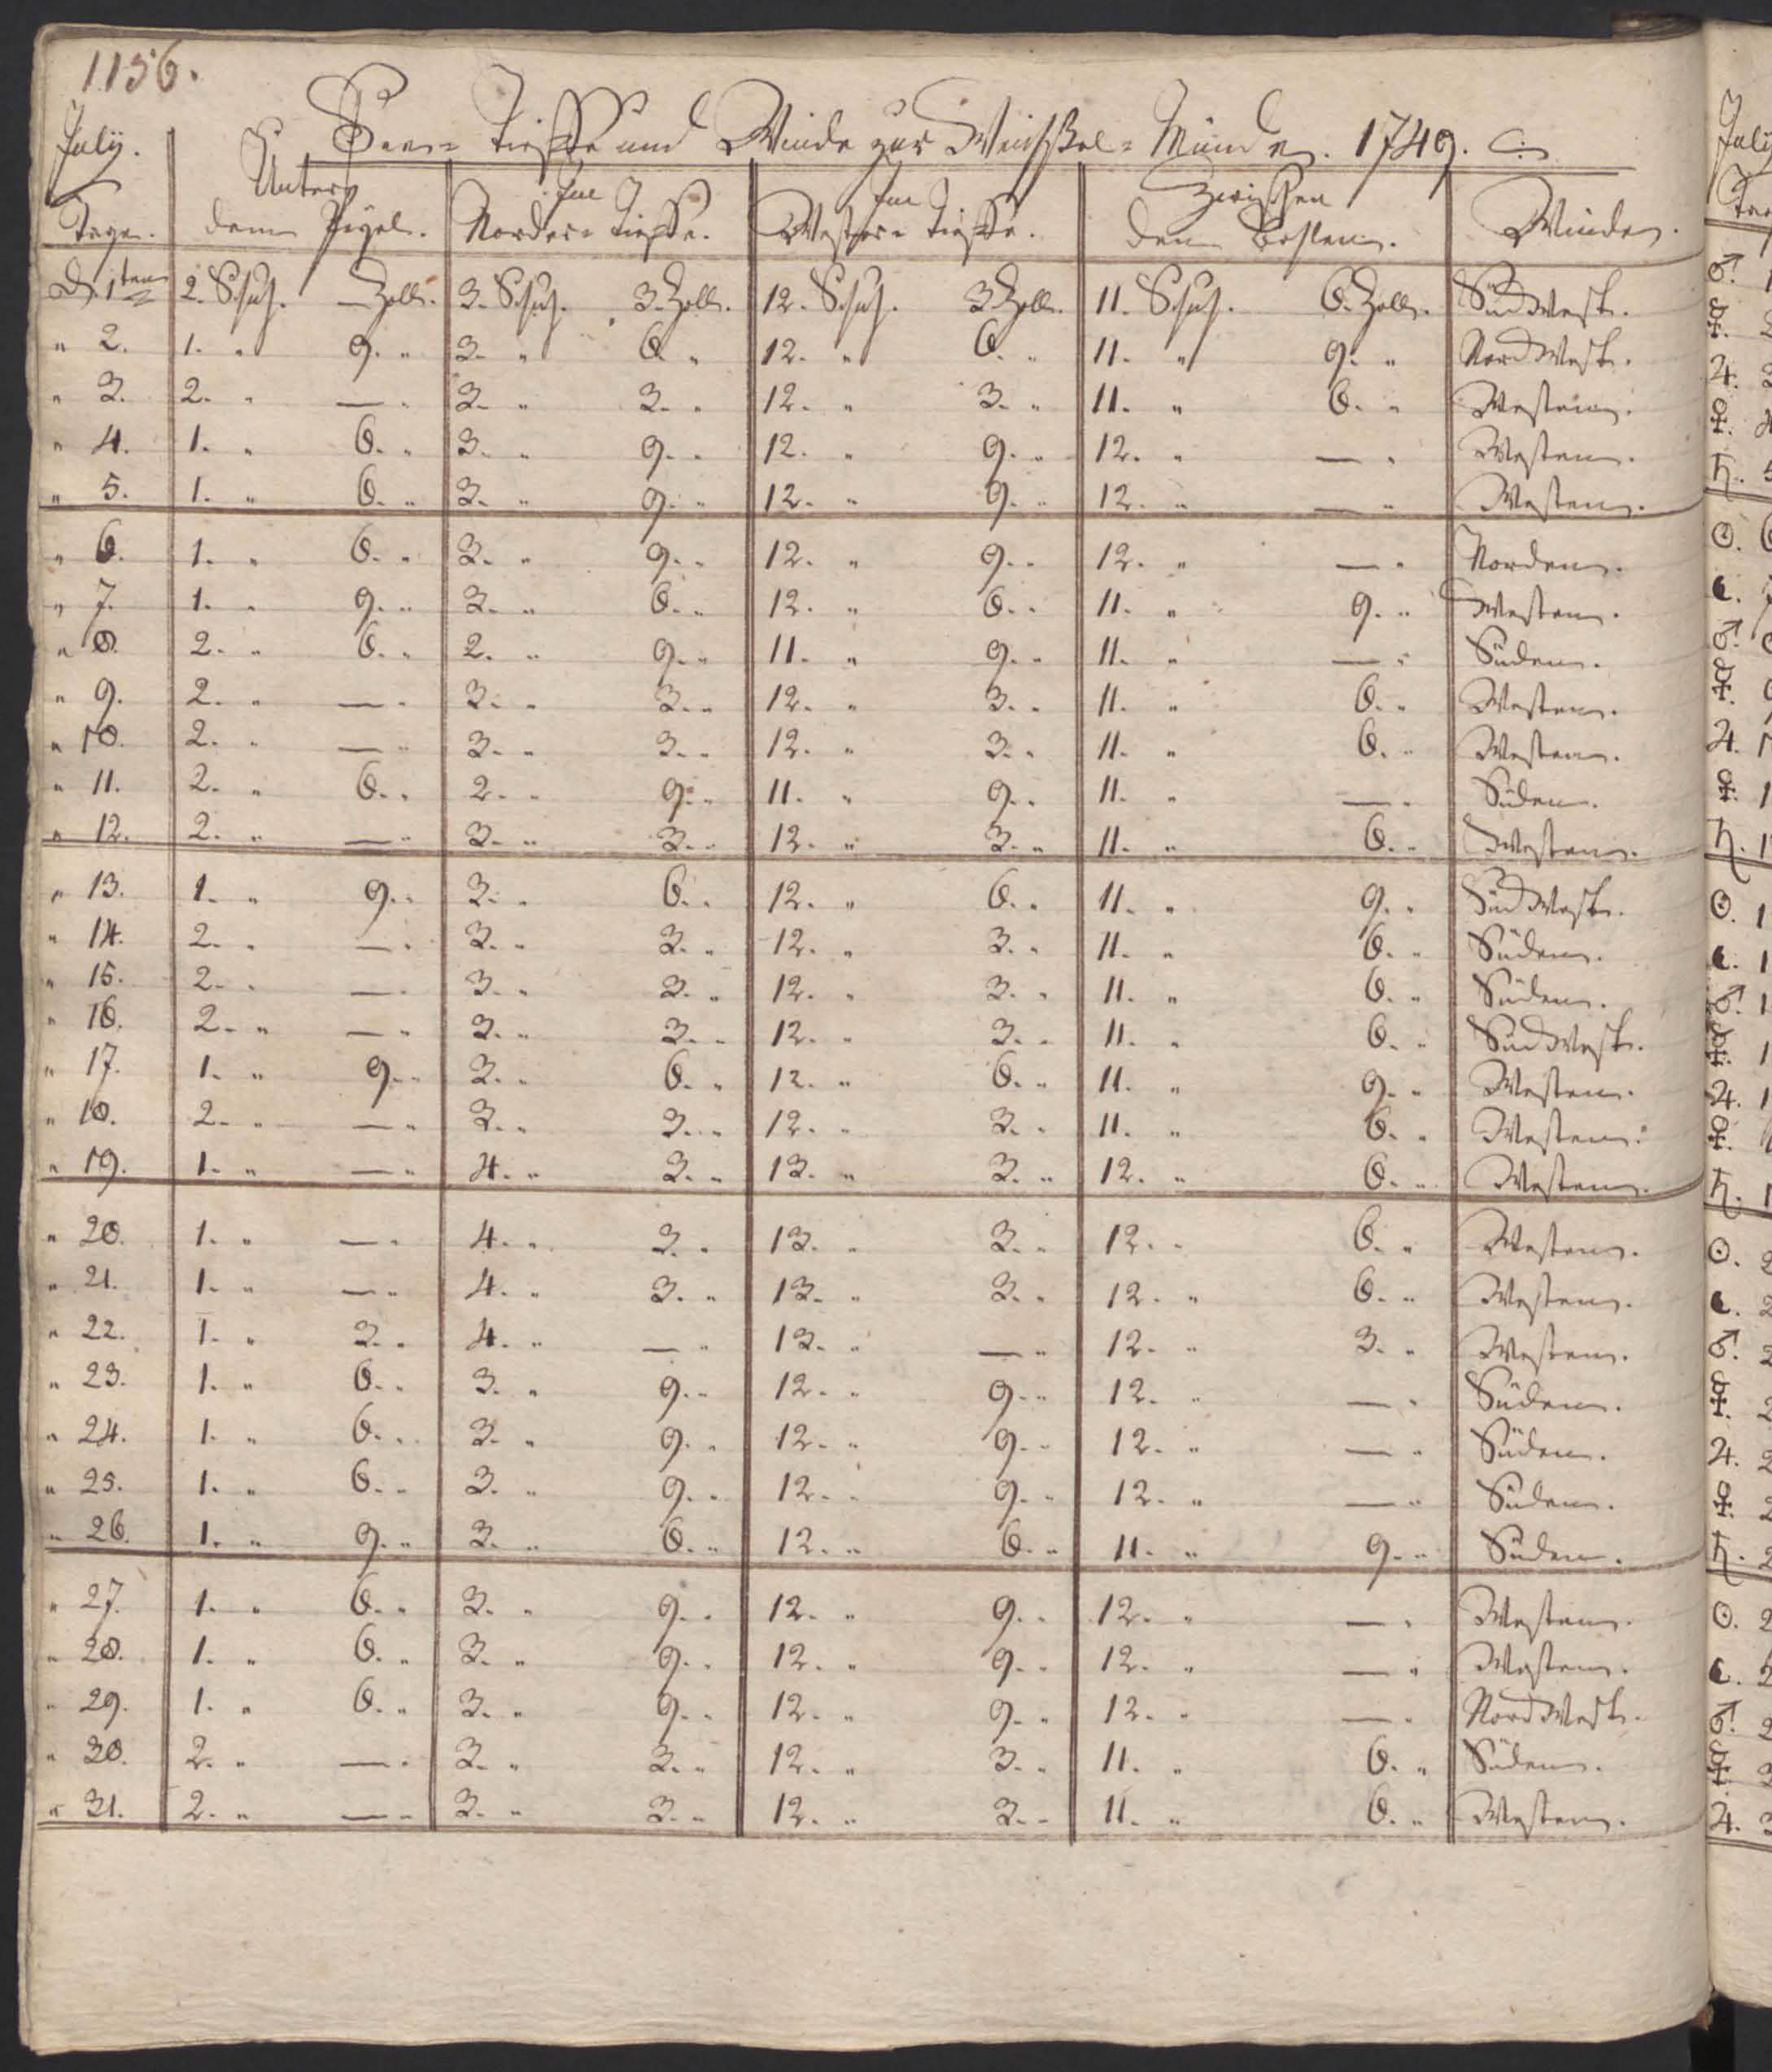 1156.
July. Seer= Tieffe und Winde zur Weichsel=Münde. 1749.
Unter Im Im Zwischen
Tage. dem Pegel. Norder= Tieffe. Wester= Tieffe. den Bohlen. Winde.
D. 1ten 2. Schuh. — Zoll. 3. Schuh. 3. Zoll. 12. Schuh. 3 Zoll. 11. Schuh. 6. Zoll. SüdWest.
" 2. 1. " 9. " 3. " 6. " 12. " 6. " 11. " 9. " NordWest.
" 3. 2. " — " 3. " 3. " 12. " 3. " 11. " 6. " Westen.
" 4. 1. " 6. " 3. " 9. " 12. " 9. " 12. " — " Westen.
" 5. 1. " 6. " 3. " 9. " 12. " 9. " 12. " — " Westen.
" 6. 1. " 6. " 3. " 9. " 12. " 9. " 12. " — " Norden.
" 7. 1. " 9. " 3. " 6. " 12. " 6. " 11. " 9. " Westen.
" 8. 2. " 6. " 2. " 9. " 11. " 9. " 11. " — " Süden.
" 9. 2. " — " 3. " 3. " 12. " 3. " 11. " 6. " Westen.
" 10. 2. " — " 3. " 3. " 12. " 3. " 11. " 6. " Westen.
" 11. 2. " 6. " 2. " 9. " 11. " 9. " 11. " — " Süden.
" 12. 2. " — " 3. " 3. " 12. " 3. " 11. " 6. " Westen.
" 13. 1. " 9. " 3. " 6. " 12. " 6. " 11. " 9. " SüdWest.
" 14. 2. " — " 3. " 3. " 12. " 3. " 11. " 6. " Süden.
" 15. 2. " — " 3. " 3. " 12. " 3. " 11. " 6. " Süden.
" 16. 2. " — " 3. " 3. " 12. " 3. " 11. " 6. " SüdWest.
" 17. 1. " 9. " 3. " 6. " 12. " 6. " 11. " 9. " Westen.
" 18. 2. " — " 3. " 3. " 12. " 3. " 11. " 6. " Westen.
" 19. 1. " — " 4. " 3. " 13. " 3. " 12. " 6. " Westen.
" 20. 1. " — " 4. " 3. " 13. " 3. " 12. " 6. " Westen.
" 21. 1. " — " 4. " 3. " 13. " 3. " 12. " 6. " Westen.
" 22. 1. " 3. " 4. " — " 13. " — " 12. " 3. " Westen.
" 23. 1. " 6. " 3. " 9. " 12. " 9. " 12. " — " Süden.
" 24. 1. " 6. " 3. " 9. " 12. " 9. " 12. " — " Süden.
" 25. 1. " 6. " 3. " 9. " 12. " 9. " 12. " — " Süden.
" 26. 1. " 9. " 3. " 6. " 12. " 6. " 11. " 9. " Süden.
" 27. 1. " 6. " 3. " 9. " 12. " 9. " 12. " — " Westen.
" 28. 1. " 6. " 3. " 9. " 12. " 9. " 12. " — " Westen.
" 29. 1. " 6. " 3. " 9. " 12. " 9. " 12. " — " NordWest.
" 30. 2. " — " 3. " 3. " 12. " 3. " 11. " 6. " Süden.
" 31. 2. " — " 3. " 3. " 12. " 3. " 11. " 6. " Westen.